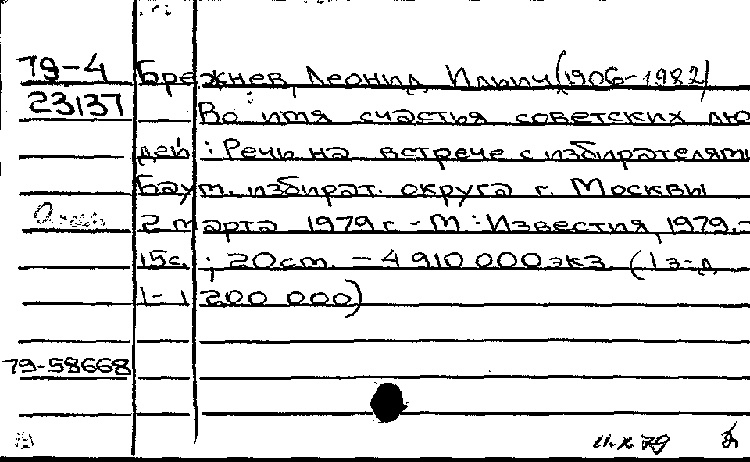 79-4 Брежнев, Леонид Ильич (1906-1982)
23137 Во имя счастья советских лю
дей : Речь на встрече с избирателями
Баут. избират. округа г. Москвы
2 марта 1979 г. - М : Известия, 1979.-
15 с. ; 20 см. - 4 910 000 экз. (1 з-д
1-1 200 000)
79-58668
79